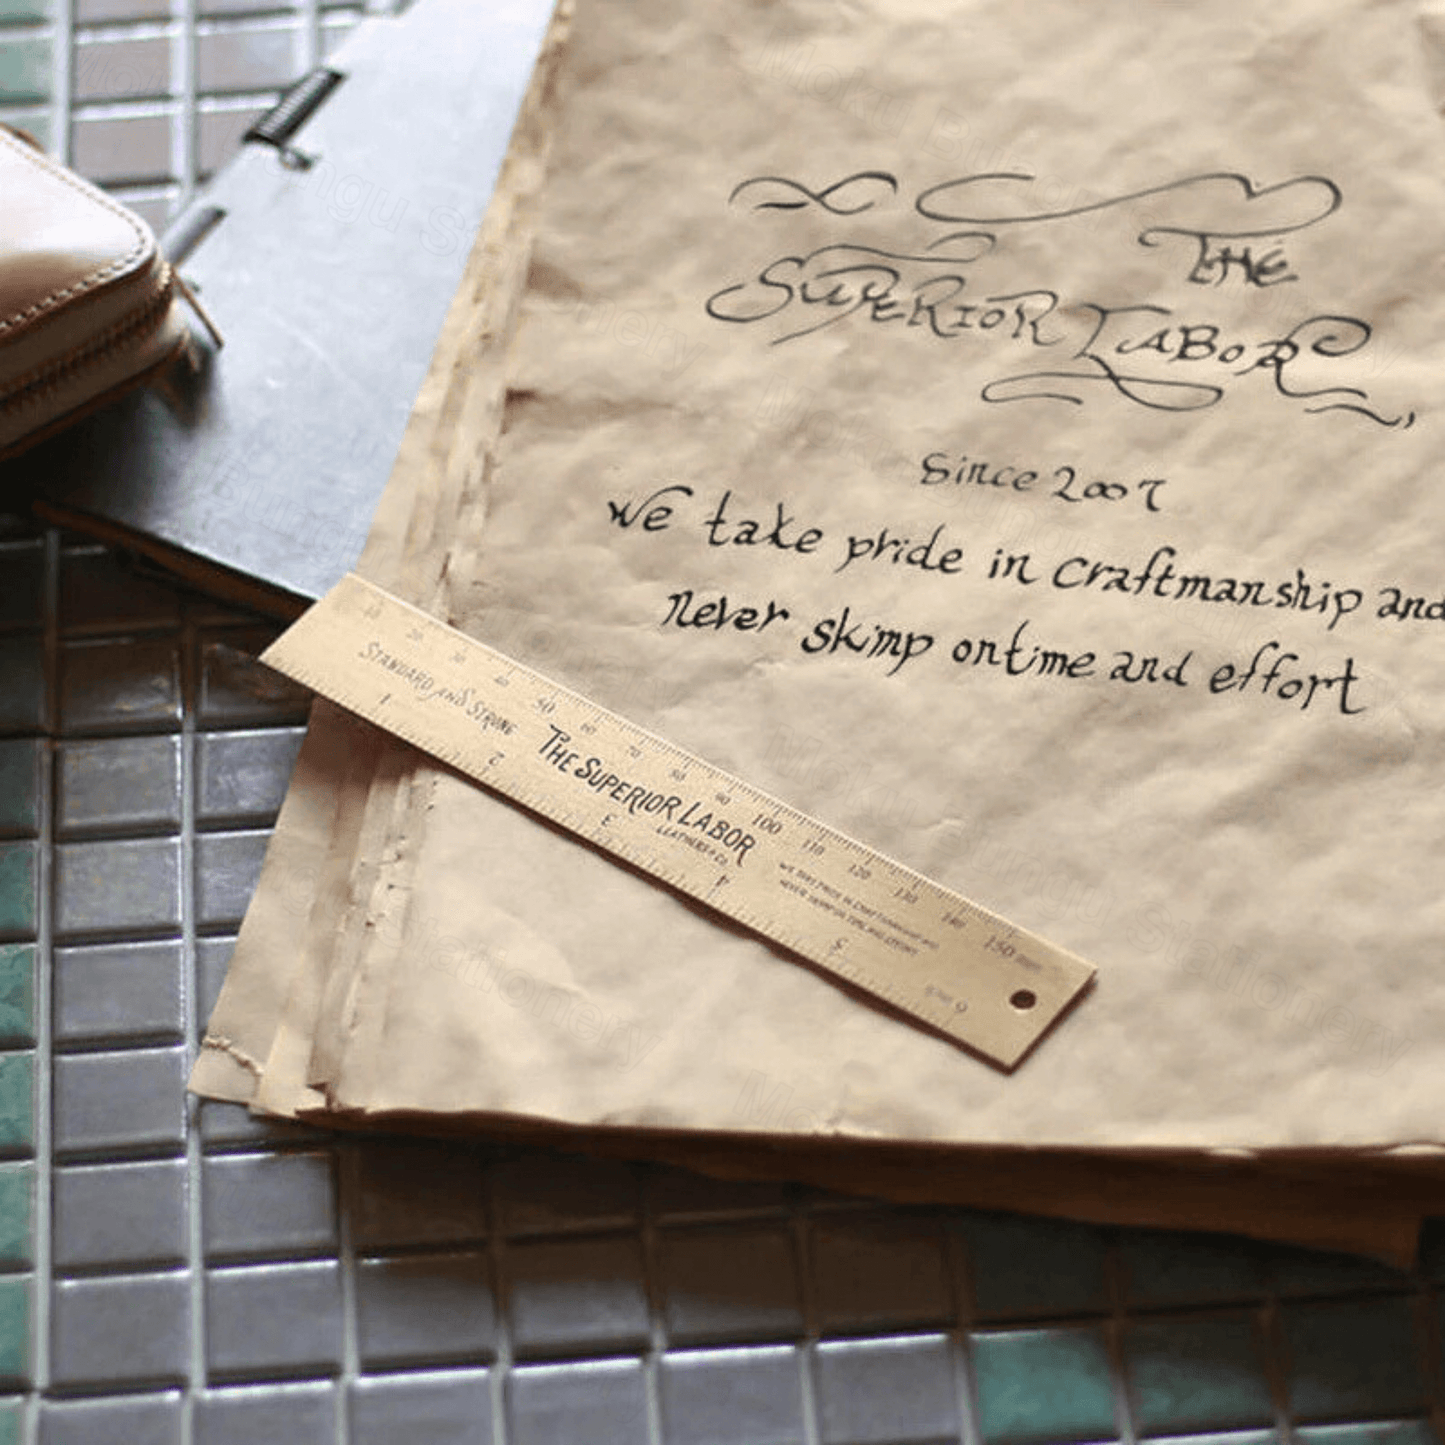 THE
SUPERIOR LABOR,
Since 2007
we take pride in craftmanship and
never skimp ontime and effort
10 20 30 40 50 60 70 80 90 100 110 120 130 140 150 mm
STANDARD AND STRONG
THE SUPERIOR LABOR
LEATHERS & CO.
WE TAKE PRIDE IN CRAFTMANSHIP AND
NEVER SKIMP ON TIME AND EFFORT
1 2 3 4 5 6 inch
Moku Bilingu Stationery